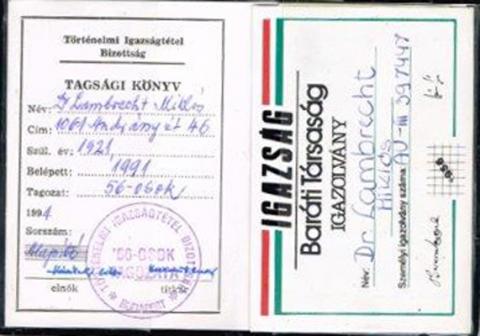 Történelmi Igazságtétel
Bizottság
TAGSÁGI KÖNYV
Név: Dr Lambrecht Miklós
Cím: 1061 Andrássy út 46
Szül. év: 1921
Belépett: 1991
Tagozat: 56-osok
1994
Sorszám:
Alapító
elnök titkár
TÖRTÉNELMI IGAZSÁGTÉTEL BIZOTTSÁG
'56-OSOK
BUDAPEST
IGAZSÁG
Baráti Társaság
IGAZOLVÁNY
Név: Dr. Lambrecht
Miklós
Személyi igazolvány száma: AU-III 397447
1956